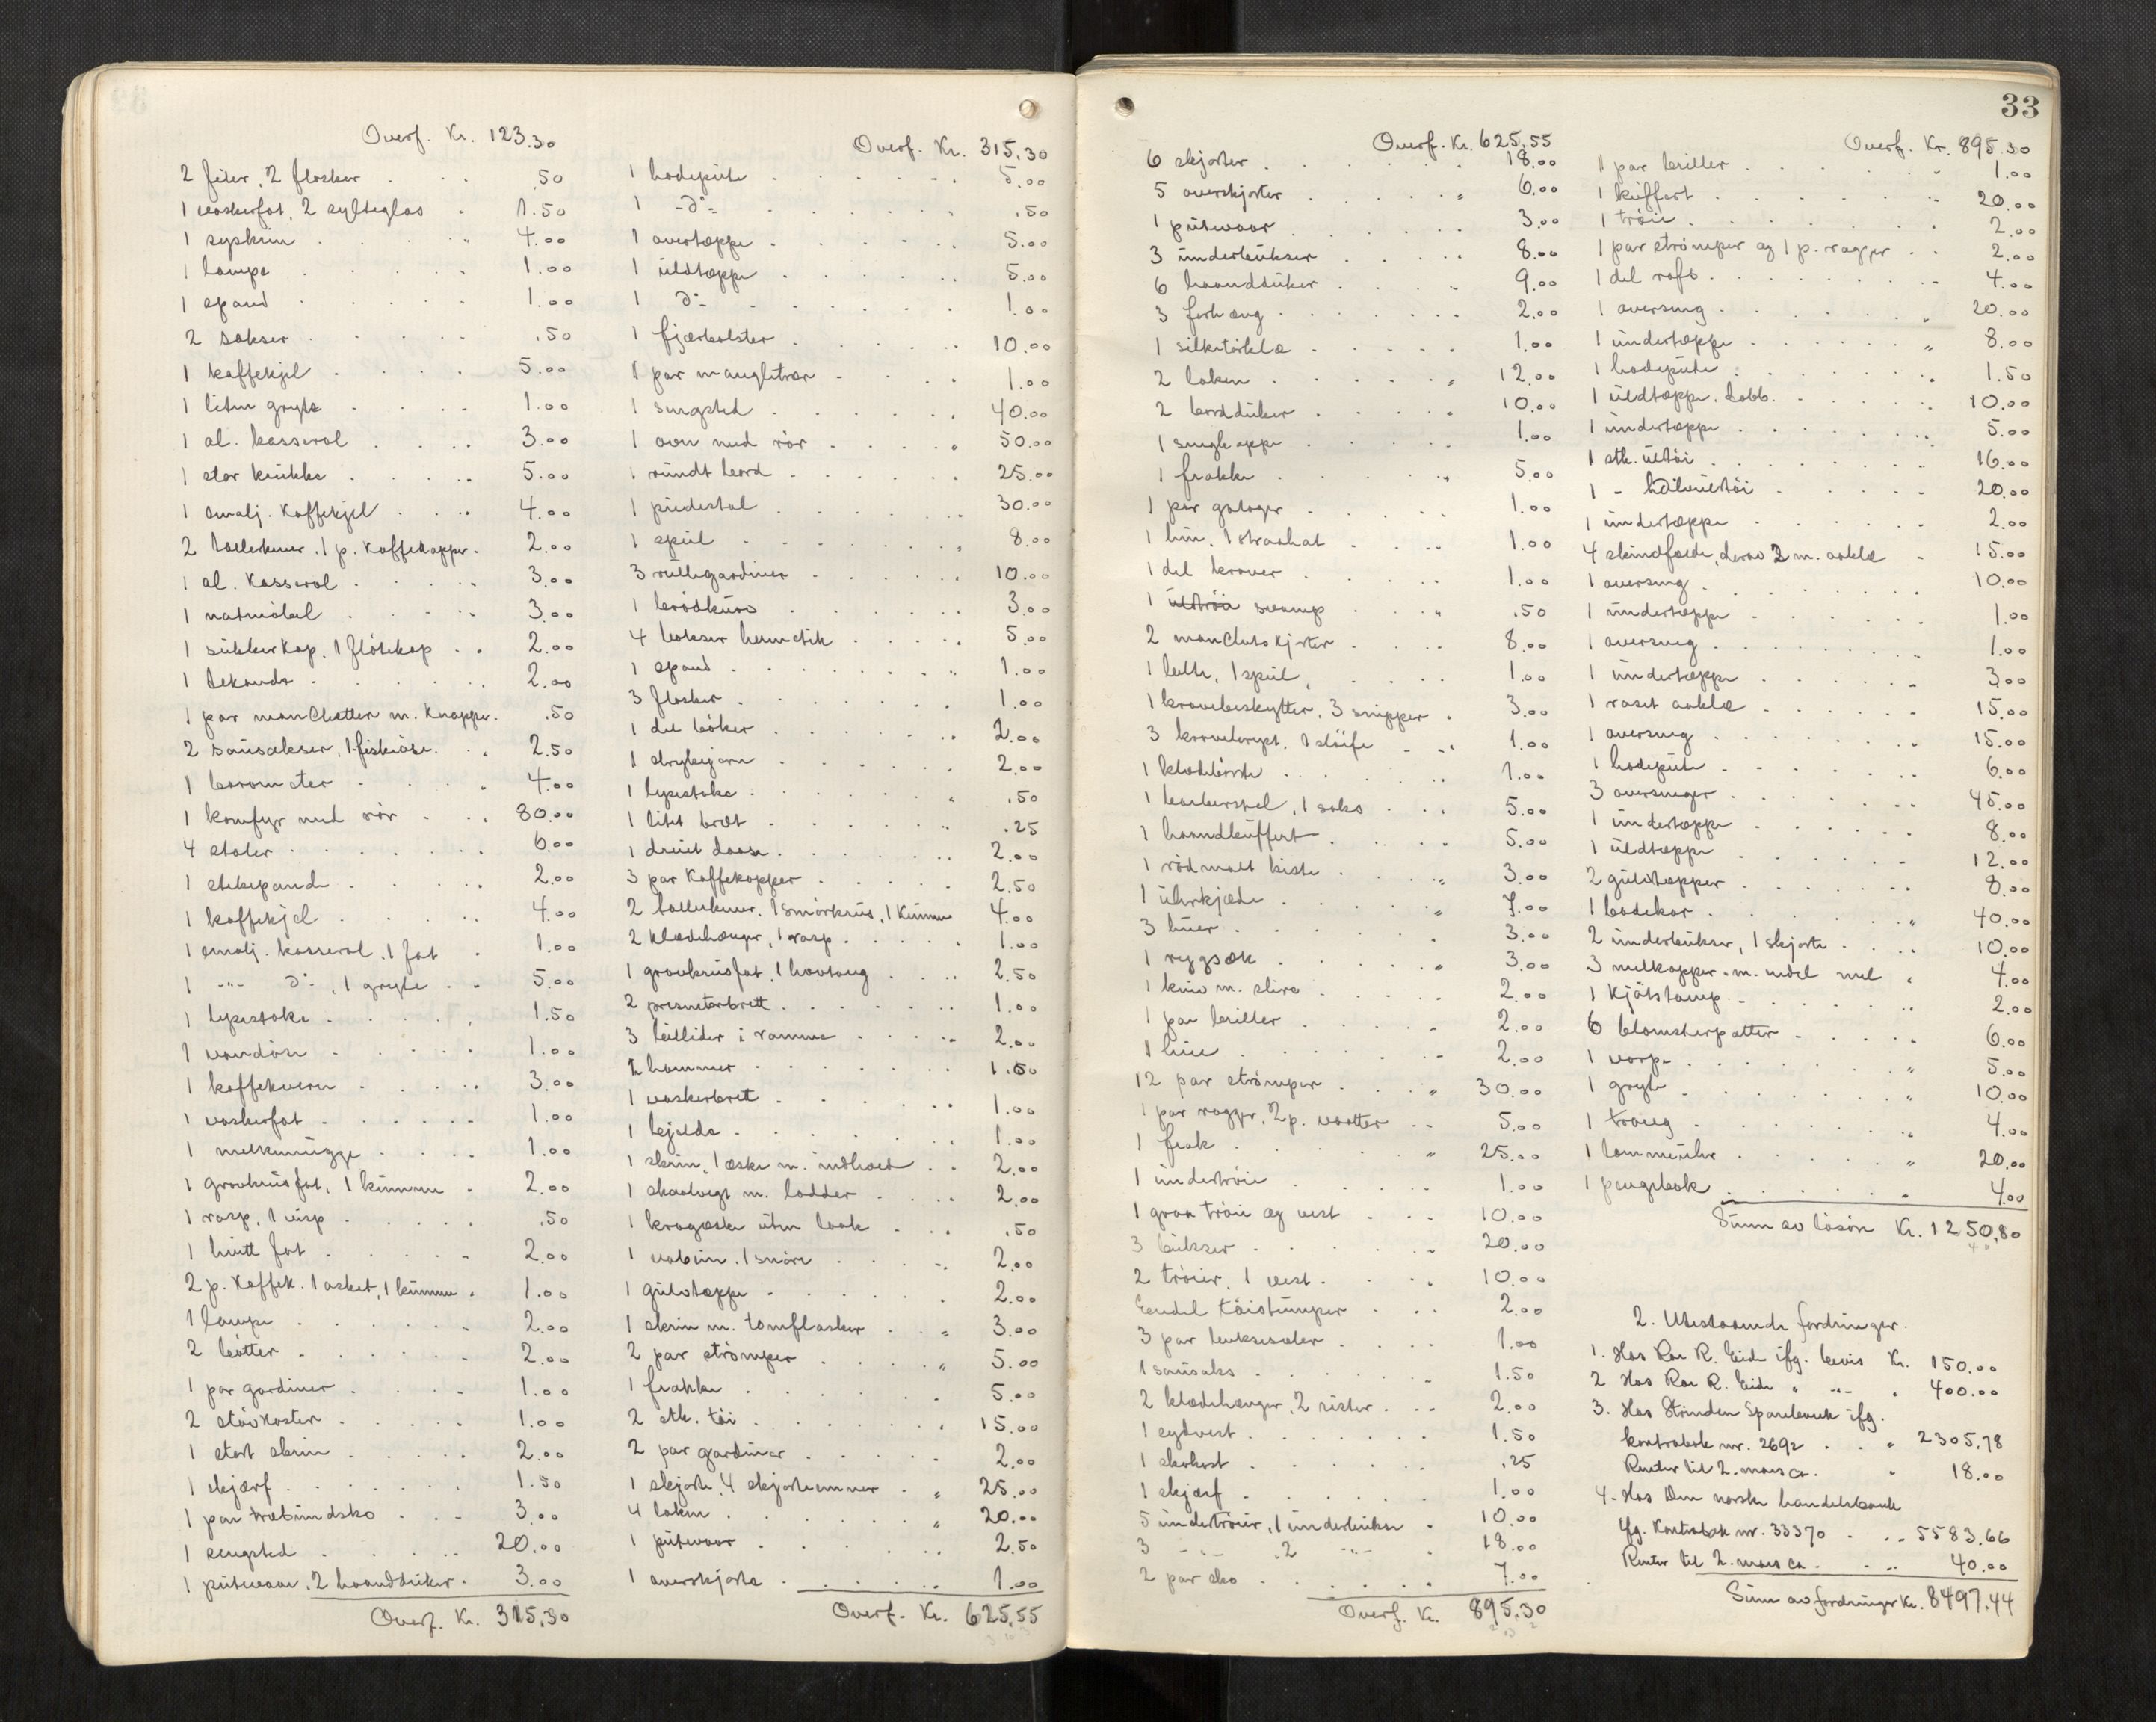 Overf. Kr. 123.30
2 filer, 2 flasker . . . .50
1 vaskerfat, 2 sylteglas . 1.50
1 syskrin . . . . 4.00
1 lampe . . . . 1.00
1 spand . . . . 1.00
2 sakser . . . . .50
1 kaffekjel . . . . 5.00
1 liten gryte . . . . 1.00
1 al. kasserol . . . . 3.00
1 stor krukke . . . . 5.00
1 emalj. Kaffekjel . . . 4.00
2 tallerkener, 1 p. Kaffekopper . 2.00
1 al. Kasserol . . . . 3.00
1 natmöbel . . . . 3.00
1 sukkerkop, 1 flötekop . . 2.00
1 tekande . . . . 2.00
1 par manchetter m. Knapper. .50
2 sausakser, 1 fiskeöse. . . 2.50
1 barometer . . . . 4.00
1 komfyr med rör . . . 80.00
4 stoler . . . . 6.00
1 stekepande . . . . 2.00
1 kaffekjel . . . . 4.00
1 emalj. kasserol, 1 fat . 1.00
1 -"- do, 1 gryte . . 5.00
1 lysestake . . . . 1.50
1 vandöse . . . . 1.00
1 kaffekvern . . . . 3.00
1 vaskerfat . . . . 1.00
1 melkemugge . . . . 1.00
1 grovbrusfat, 1 kumme . 2.00
1 rasp, 1 visp . . . . .50
1 hvitt fat . . . . 2.00
2 p. Kaffek. 1 asket, 1 kumme . 1.00
1 lampe . . . . 2.00
2 bötter . . . . 2.00
1 par gardiner . . . . 1.00
2 støvkoster . . . . 1.00
1 stort skrin . . . . 2.00
1 skjærf . . . . 1.50
1 par træbundsko . . . 3.00
1 sengsted . . . . 20.00
1 putevaar, 2 haandduker . 3.00
Overf. Kr. 315.30
Overf. Kr. 315.30
1 hodepute . . . . 5.00
1 -do- . . . . .50
1 overtæppe . . . . 5.00
1 uldtæppe . . . . 5.00
1 do- . . . . 1.00
1 fjærbolster . . . . 10.00
1 par mangletrær . . . . 1.00
1 sengsted . . . . 40.00
1 ovn med rör . . . . 50.00
1 rundt bord . . . . 25.00
1 piedestal . . . . 30.00
1 speil . . . . 8.00
3 rullegardiner . . . . 10.00
1 brödkurv . . . . 3.00
4 bokser hermetik . . . . 5.00
1 spand . . . . 1.00
3 flasker . . . . 1.00
1 del böker . . . . 2.00
1 strykejern . . . . 2.00
1 lysestake . . . . .50
1 litet bræt . . . . .25
1 dreiet daase . . . . 2.00
3 par Kaffekopper . . . . 2.50
2 tallerkener, 1 smörkrus, 1 Kumme 4.00
2 klædehænger, 1 rasp . . . . 1.00
1 grovbrusfat, 1 hovtang . . . 2.50
2 presneterbrett . . . . 1.00
3 billider i ramme . . . . 2.00
2 hammer . . . . 1.50
1 vaskerbret . . . . 1.00
1 bjelde . . . . 1.00
1 skrin, 1 æske m. indhold . . 2.00
1 skaalvegt m. lodder . . . 2.00
1 kragæske uten laak . . . .50
1 vabein, 1 snöre . . . . 2.00
1 gulvtæppe . . . . 2.00
1 skrin m. tomflasker . . . 3.00
2 par strömper . . . . 5.00
1 frakke . . . . 5.00
2 stk. töi . . . . 15.00
2 par gardiner . . . . 2.00
1 skjorte, 4 skjorteemner . . 25.00
4 laken . . . . 20.00
1 putevaar . . . . 2.50
1 overskjorte . . . . 1.00
Overf. Kr. 625,55
33
Overf. Kr. 625,55
6 skjorter . . . . 18.00
5 overskjorter . . . . 6.00
1 putevaar . . . . 3.00
3 underbukser . . . . 8.00
6 haandduker . . . . 9.00
3 forhæng . . . . 2.00
1 silketörklæ . . . . 1.00
2 laken . . . . 12.00
2 bordduker . . . . 10.00
1 sengteppe . . . . 1.00
1 frakke . . . . 5.00
1 par galoger . . . . 1.00
1 hue, 1 straahat . . . . 1.00
1 del kraver . . . . 1.00
1 uldtröie svamp . . . . .50
2 manchetskjorter . . . . 8.00
1 belte, 1 speil . . . . 1.00
1 kravebeskytter, 3 snipper . 3.00
3 kravebryst, 1 slöife . . . 1.00
1 klædebörste . . . . 1.00
1 barberstel, 1 saks . . . 5.00
1 haandkuffert . . . . 5.00
1 rödmalt kiste . . . . 3.00
1 uhrkjede . . . . 7.00
3 huer . . . . 3.00
1 rygsæk . . . . 3.00
1 kniv m. slire . . . . 2.00
1 par briller . . . . 2.00
1 hue . . . . 2.00
12 par strömper . . . . 30.00
1 par ragger, 2 p. vaatter . . 5.00
1 frak . . . . 25.00
1 undertröie . . . . 1.00
1 graa tröie og vest . . . 10.00
3 bukser . . . . 20.00
2 tröier, 1 vest . . . . 10.00
Eendel töistumper . . . 2.00
3 par buksesæler . . . . 1.00
1 sausaks . . . . 1.50
2 klædehænger, 2 rister . . . 2.00
1 sydvest . . . . 1.50
1 skokost . . . . .25
1 skjærf . . . . 1.00
5 undertröier, 1 underbukse . 10.00
3 -"- , 2 -"- . 18.00
2 par sko . . . . 7.00
Overf. Kr. 895.30
Overf. Kr. 895.30
1 par briller . . . . 1.00
1 kuffert . . . . 20.00
1 tröie . . . . 2.00
1 par strömper og 1 p. ragger . . 2.00
1 del raft . . . . 4.00
1 overseng . . . . 20.00
1 undertæppe . . . . 8.00
1 hodepute . . . . 1.50
1 uldtæppe, dobb. . . . . 10.00
1 undertæppe . . . . 5.00
1 stk. ultöi . . . . 16.00
1 - halvultöi . . . . 20.00
1 undertæppe . . . . 2.00
4 skindfælde, derav 2 m. aaklæ . 15.00
1 overseng . . . . 10.00
1 undertæppe . . . . 1.00
1 overseng . . . . 1.00
1 undertæppe . . . . 3.00
1 roset aaklæ . . . . 15.00
1 overseng . . . . 15.00
1 hodepute . . . . 6.00
3 oversenger . . . . 45.00
1 undertæppe . . . . 8.00
1 uldtæppe . . . . 12.00
2 gulvtæpper . . . . 8.00
1 badekar . . . . 40.00
2 underbukser, 1 skjorte . . . 10.00
3 melkopper m. endel mel . 4.00
1 Kjötstamp . . . . 2.00
6 blomsterpotter . . . . 6.00
1 vorpe . . . . 5.00
1 gryte . . . . 10.00
1 traug . . . . 4.00
1 lommeuhr . . . . 20.00
1 pengebok . . . . 4.00
Sum av lösöre Kr. 1250,80
2. Utestaaende fordringer.
1. Hos Roe R. Eide ifg. bevis Kr. 150.00
2 Hos Roe R. Eide " -"- . 400.00
3. Hos Strinden Sparebank ifg.
kontrabok nr. 2692 . . " 2305,78
Renter til 2. mars ca. " 18.00
4. Hos Den norske handelsbank
ifg. Kontrabok nr. 33370 . . . 5583.66
Renter til 2. mars ca . . . 40.00
Sum av fordringer Kr. 8497,44